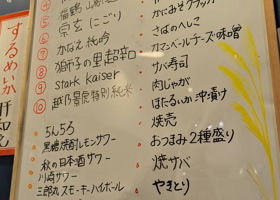 宗玄 にごり
かなえ 純吟
獅子の里 超辛口
⑨ stark kaiser
⑩ 越乃景虎 特別純米
らんしろ
黒糖焼酎レモンサワー
秋の日本酒サワー
川崎サワー
三郎丸スモーキーハイボール
かにみそクラッカー
さばのへしこ
カマンベールチーズ・味噌
サバ寿司
肉じゃが
ほたるいか沖漬け
焼売
おつまみ2種盛り
焼サバ
やきとり
するめいか